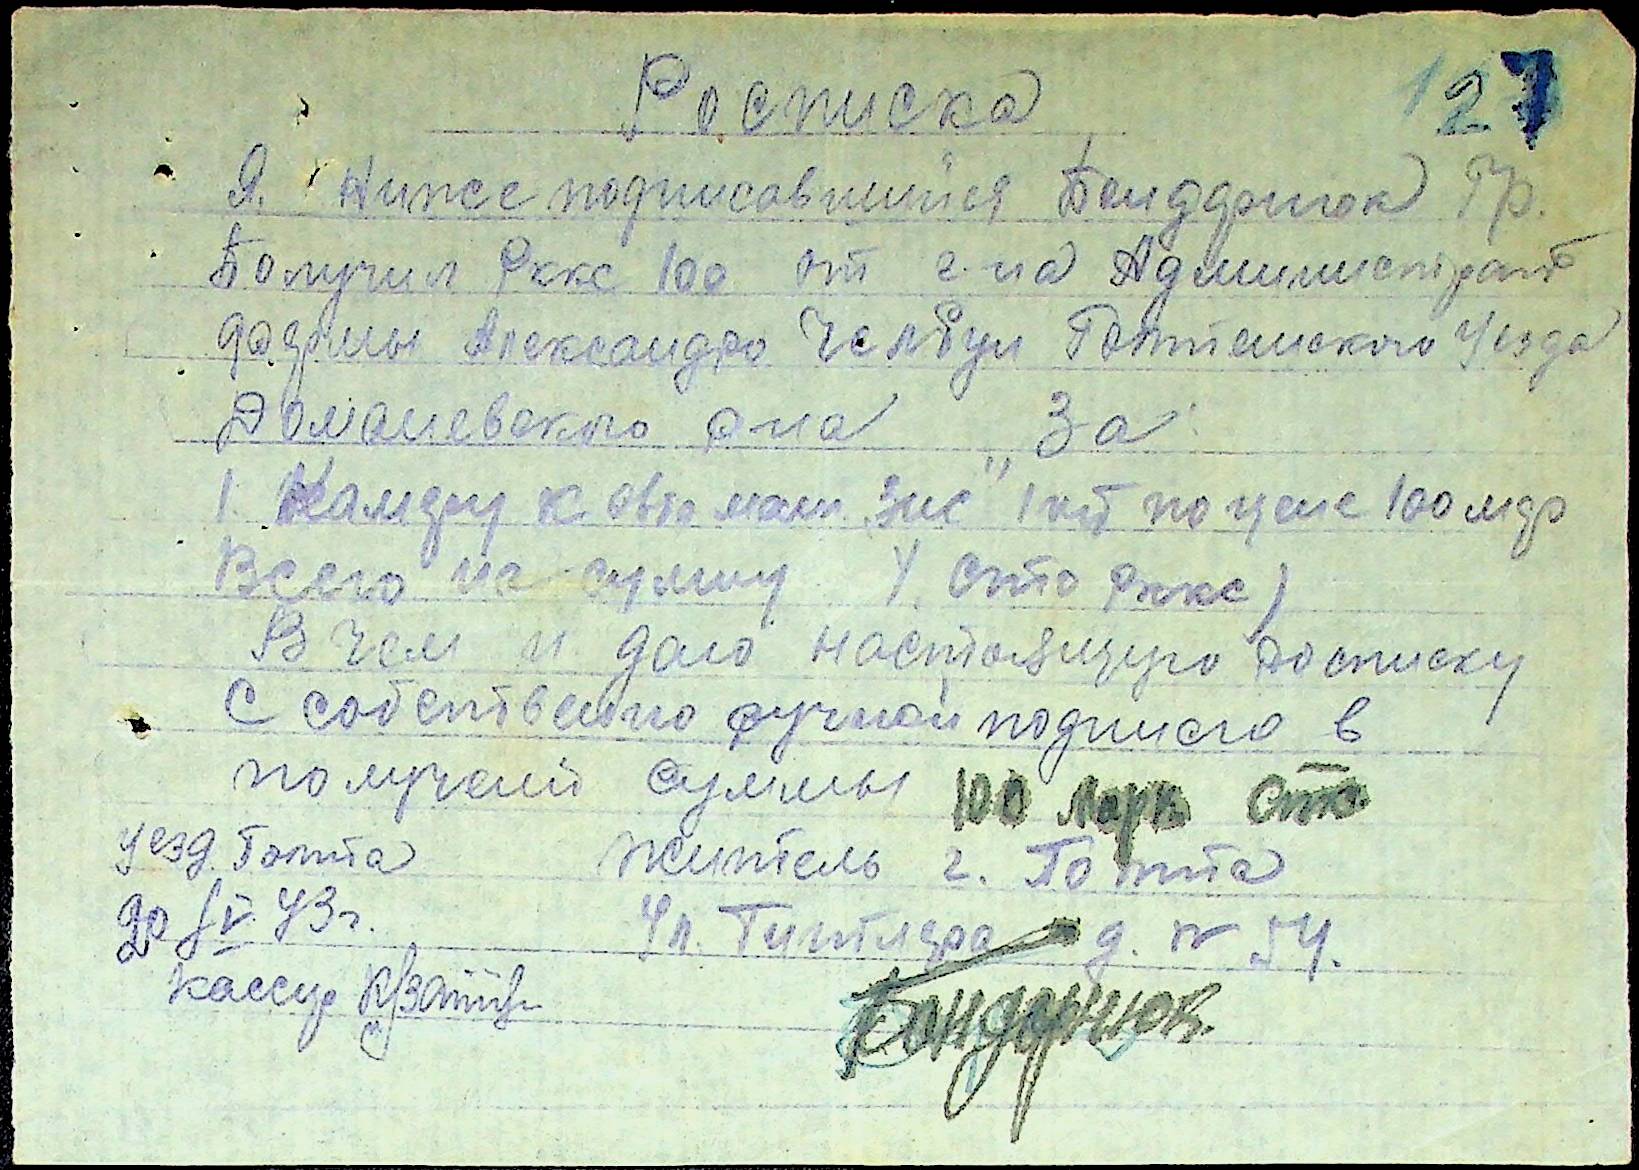 Росписка
127
Я. Ниже подписавшийся Бондорчюк Гр.
Получил Рккс 100 от г-на Администрат
фармы Александра Гольтенского Уезда
Доманевского р-на За:
1. Камеру к авто маш. "Зис" 1 шт по цене 100 мар
Всего на сумму (Сто рккс)
В чем и даю настоящую росписку
С собственно ручной подписю в
получений суммы 100 Марк Сто.
уезд. Голта Житель г. Голта
V 43 г. Ул. Гитлера д. № 54.
Кассир Бондорчюк.